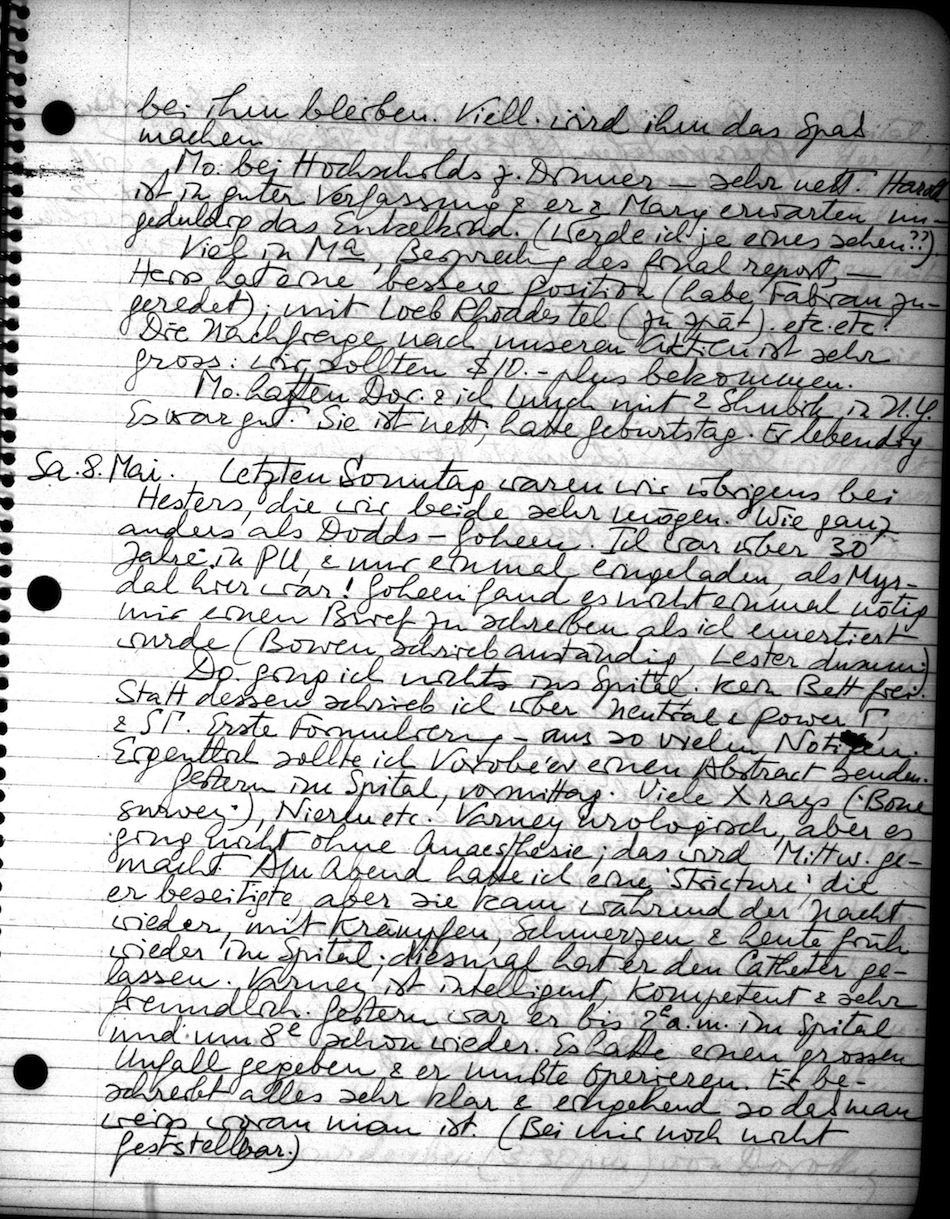 bei ihm bleiben. Viell. wird ihm das Spaß
machen.
Mo. bei Hochschilds z. Dinner – sehr nett. Harold
ist in guter Verfassung & er & Mary erwarten un-
geduldig das Enkelkind. (Werde ich je eines sehen??)
Viel in Ma, Besprechung des final report, –
Hess hat eine bessere Position (habe Fabian zu-
geredet); mit Loeb Rhodes tel (zu spät). etc. etc.
Die Nachfrage nach unseren Aktien ist sehr
gross: wir sollten $10.– plus bekommen.
Mo. hatten Dor. & ich Lunch mit 2 Shubik in N.Y.
Es war gut. Sie ist nett, hatte Geburtstag. Er lebendig
Sa. 8. Mai. Letzten Sonntag waren wir übrigens bei
Hesters, die wir beide sehr mögen. Wie ganz
anders als Dodds – Goheen. Ich war über 30
Jahre in PU, & nur einmal eingeladen, als Myr-
dal hier war! Goheen fand es nicht einmal nötig
mir einen Brief zu schreiben als ich emeritiert
wurde (Bowen schrieb anständig, Lester dumm)
Do. ging ich nicht ins Spital. Kein Bett frei.
Statt dessen schrieb ich über Neutral & power Γ,
& SΓ. Erste Formulierung – aus so vielen Notizen.
Eigentlich sollte ich Vorobev einen Abstract senden.
Gestern im Spital, vormittag. Viele X rays ('Bone
survey'), Nieren etc. Varney urologisch, aber es
ging nicht ohne Anaesthesie; das wird Mittw. ge-
macht. Am Abend hatte ich eine 'Stricture' die
er beseitigte, aber sie kam während der Nacht
wieder, mit Krämpfen, Schmerzen & heute früh
wieder im Spital; diesmal hat er den Catheter ge-
lassen. Varney ist intelligent, kompetent & sehr
freundlich. Gestern war er bis 2e a.m. im Spital
und um 8e schon wieder. Es hatte einen grossen
Unfall gegeben & er mußte operieren. Er be-
schreibt alles sehr klar & eingehend so daß man
weiss woran man ist. (Bei mir noch nicht
feststellbar.)